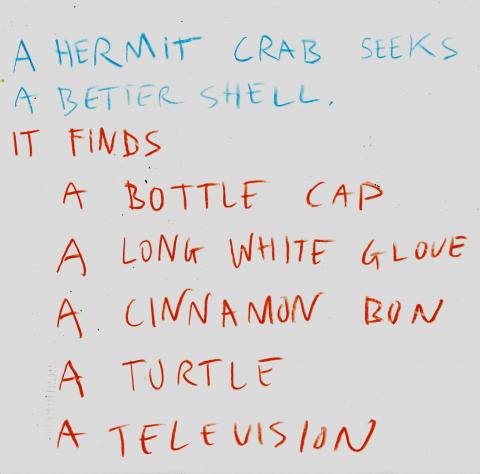 A HERMIT CRAB SEEKS
A BETTER SHELL.
IT FINDS
A BOTTLE CAP
A LONG WHITE GLOVE
A CINNAMON BON
A TURTLE
A TELEVISION